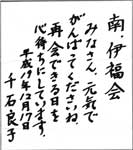 南、伊福会
みなさん、元気で
がんばってくださいね。
再会できる日を
心待ちにしています。
平成19年12月17日
千石良子